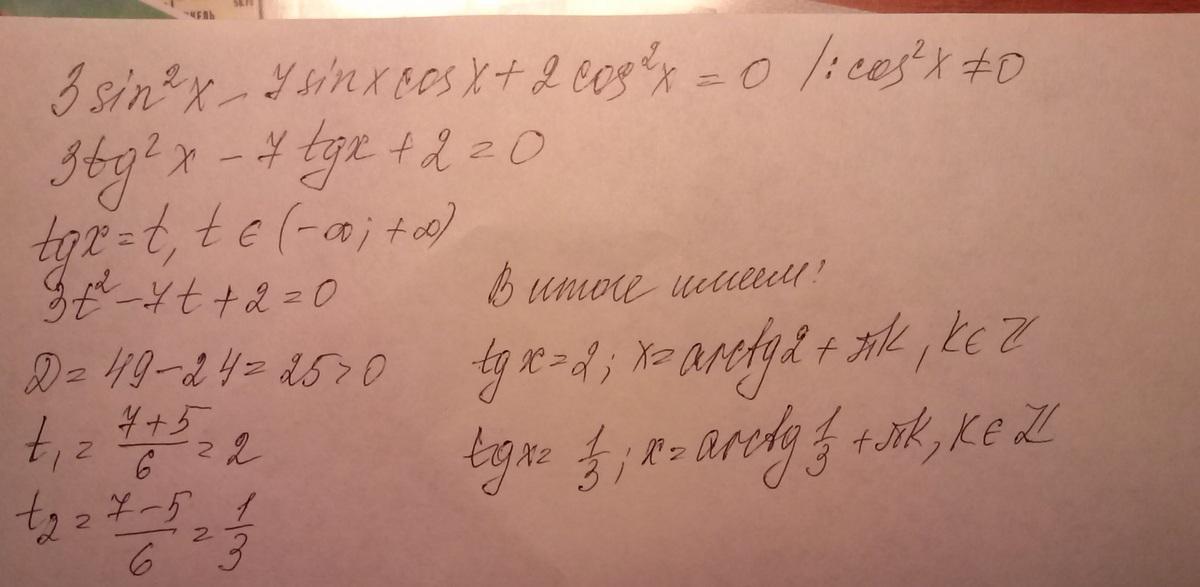 3sin²x - 7sinxcosx + 2cos²x = 0 /: cos²x ≠ 0
3tg²x - 7tgx + 2 = 0
tgx = t, t ∈ (-∞; +∞)
3t² - 7t + 2 = 0
D = 49 - 24 = 25 > 0
t₁ = (7+5)/6 = 2
t₂ = (7-5)/6 = 1/3
В итоге имеем:
tgx = 2; x = arctg2 + πk, k ∈ Z
tgx = 1/3; x = arctg 1/3 + πk, k ∈ Z